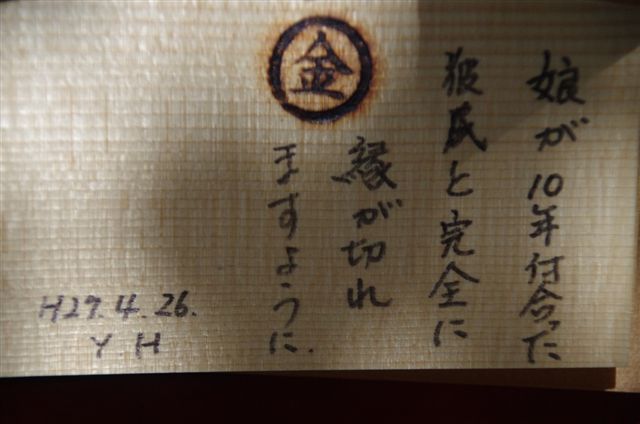 金
娘が10年付合った
彼氏と完全に
縁が切れ
ますように.
H27.4.26.
Y H